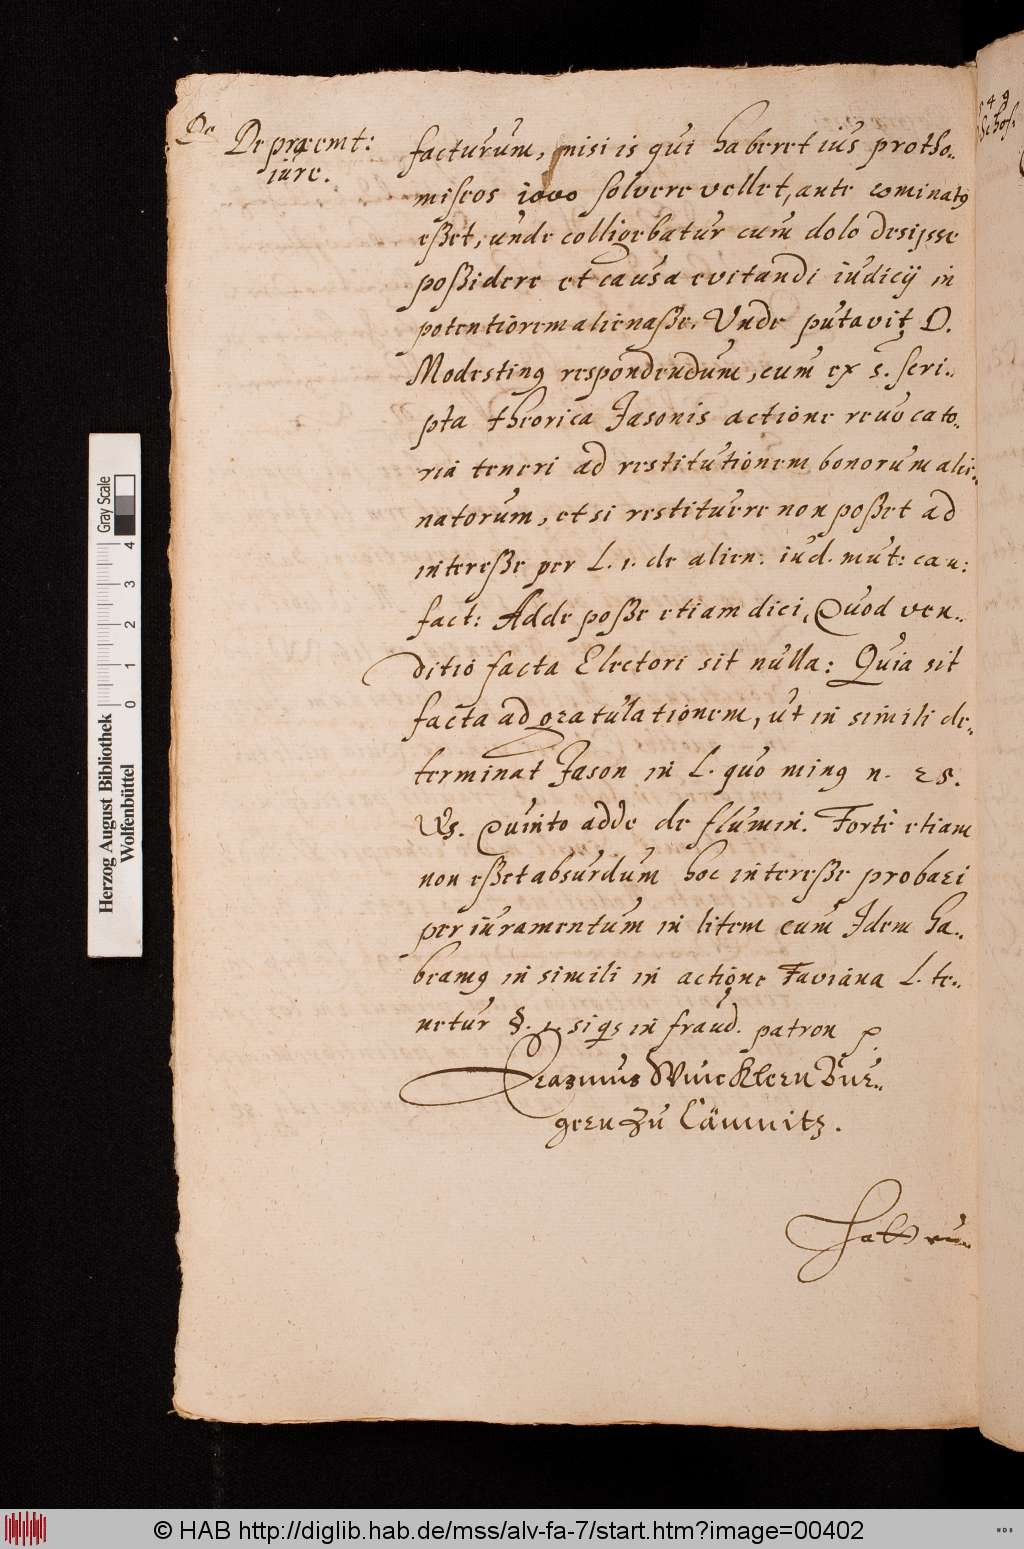 De
De præemt:
iúre.
factúrúm, nisi is qui haberet iús protho..
miseos 1000 solvere vellet, ante cominatꝰ
eßet, únde colligebatúr cúm dolo desijsse
poßidere et caúsa evitandi iúdicij in
potentiorem alienaße. Unde pútavit D.
Modestinꝰ respondendúm, eúm ex s. scri..
pta theorica Jasonis actione revocato..
ria teneri ad restitútionem bonorúm alie..
natorúm, et si restitúere non poßet ad
intereße per L. 1. de alien: iúd. mút: cau:
fact: Adde poße etiam dici, Quod ven..
ditio facta Electori sit núlla: Quia sit
facta ad gratúlationem, út in simili de..
terminat Jason in L. quo minꝰ n. 25.
Vs. Quinto adde de flúmin. Forte etiam
non eßet absúrdúm hoc intereße probari
per iúramentúm in litem cúm Idem ha..
beamꝰ in simili in actione Faviana L. te..
netúr §. 1. si qs in fraúd. patron p.
Erasmus Winicklern Búr..
gern zú Cämnitz.
Hatt eú..
49
Schos.
Herzog August Bibliothek
Wolfenbüttel
0 1 2 3 4
Gray Scale
© HAB http://diglib.hab.de/mss/alv-fa-7/start.htm?image=00402